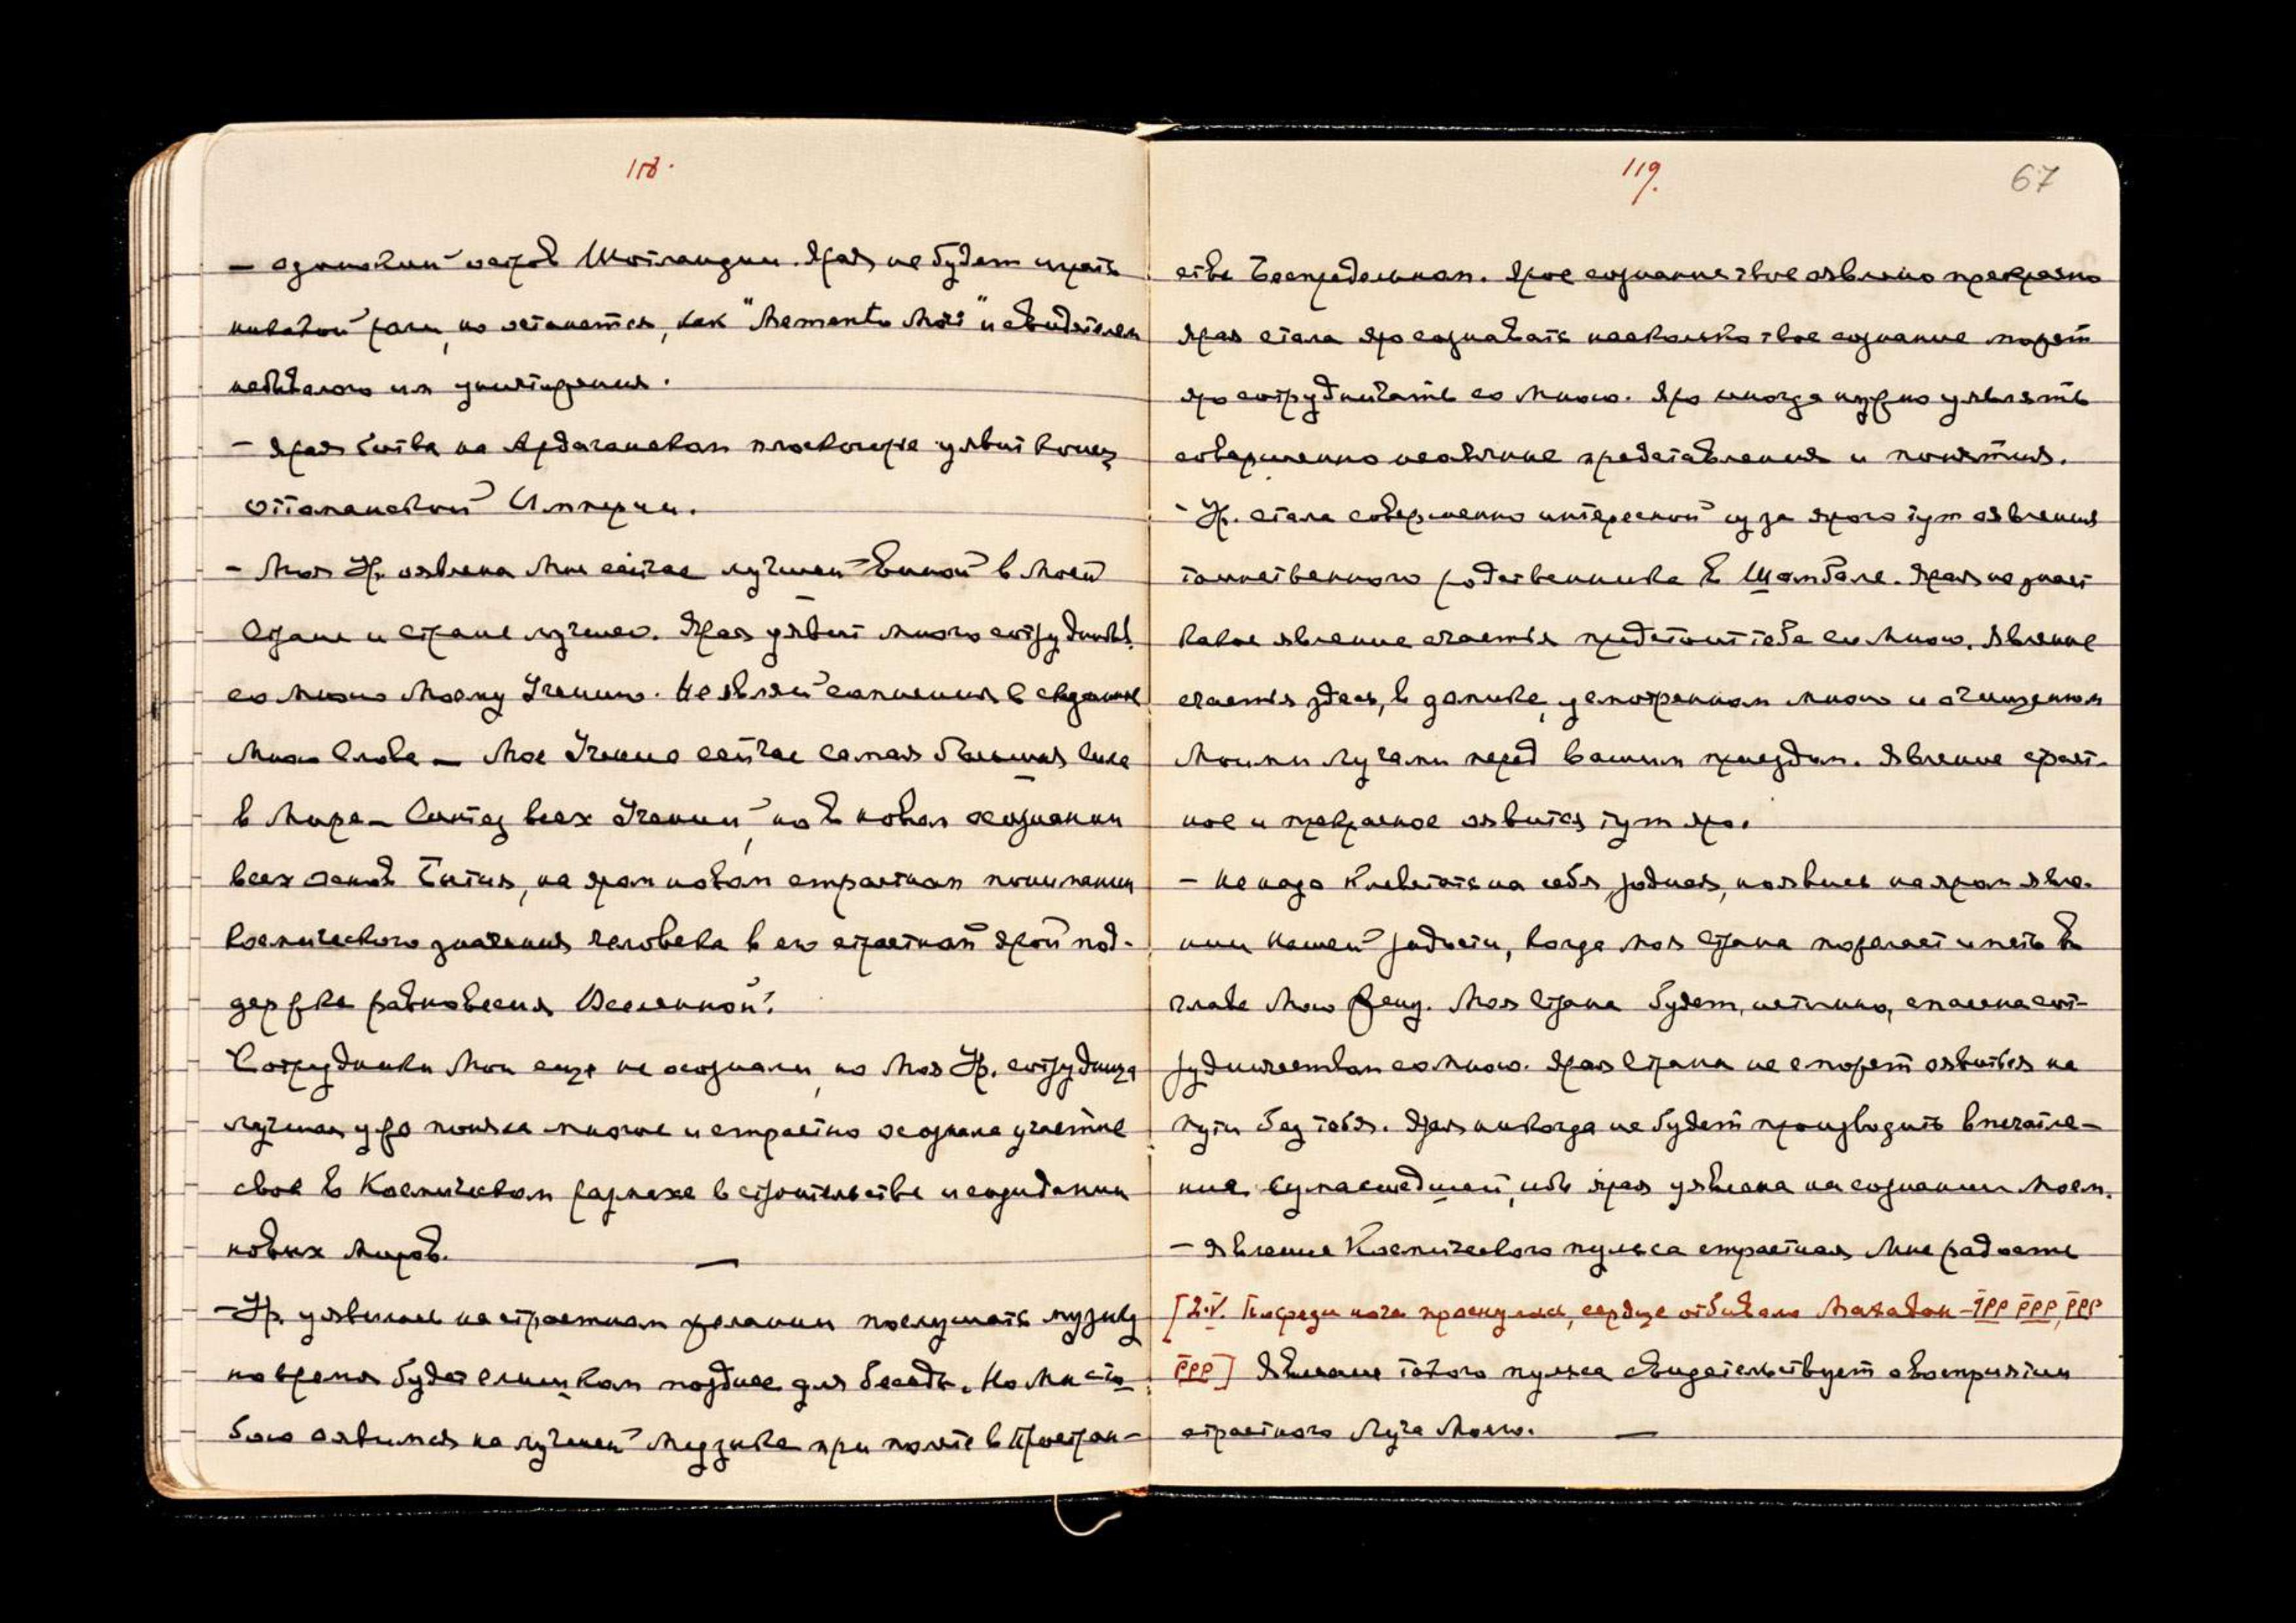 118.
– одинокий остров Шотландии. Ярая не будет играть
никакой роли, но останется, как "Memento Mori" и свидетелем
небывалого им уничтожения.
– Ярая битва на Ардаганском плоскогорье уявит конец
Оттоманской Империи.
– Моя Ур. оявлена Мне сейчас лучшей Воиной в Моей
Стране и стране лучшею. Ярая уявит много сотрудников
со Мною Моему Учению. Не являй сомнения в сказанных
Мною Слова – Мое Учение сейчас самая большая сила
в Мире – Синтез всех Учений, но в новом осознании
всех основ Бытия, на яром новом страстном понимании
космического значения человека в его страстной ярой под-
держке равновесия Вселенной.
Сотрудники Мои еще не осознали, но Моя Ур. сотрудница
лучшая уже поняла многое и страстно осознала участие
свое в Космическом размахе в строительстве и созидании
новых Миров. —
– Ур. уявилась на страстном желании послушать музыку
но время будет слишком позднее для беседы. Но Мы с то-
бою оявимся на лучшей Музыке при полете в Простран-
119.
67
стве Беспредельном. Ярое сознание твое оявлено прекрасно
Ярая стала яро сознавать насколько твое сознание может
яро сотрудничать со Мною. Яро иногда нужно уявлять
совершенно необычные представления и понятия.
– Ур. стала совершенно интересной из за ярого тут оявления
таинственного родственника в Шамбале. Ярая не знает
какое явление счастья предстоит тебе со Мною. Явление
счастья здесь, в домике, усмотренном мною и очищенном
Моими Лучами перед вашим приездом. Явление страст-
ное и прекрасное оявится тут яро.
– Не надо клеветать на себя, родная, но явись на яром явле-
нии нашей радости, когда моя Страна пожелает иметь во
главе Мою Жену. Моя Страна будет, истинно, спасена сот-
рудничеством со мною. Ярая Страна не сможет оявиться на
пути без тебя. Ярая никогда не будет производить впечатле-
ние сумасшедшей, ибо ярая уявлена на сознании Моем.
– Явление Космического пульса страстная Мне радость
[2.V. Посреди ночи проснулась, сердце отбивало Махаван – ppp ppp, ppp
ppp] Явление такого пульса свидетельствует о восприятии
страстного Луча Моего. —